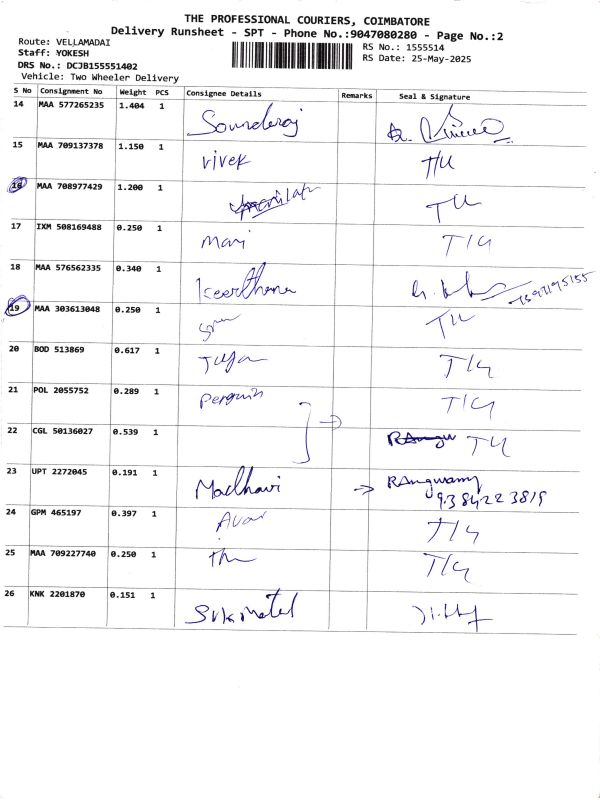 THE PROFESSIONAL COURIERS, COIMBATORE
Delivery Runsheet - SPT - Phone No.:9047080280 - Page No.:2
Route: VELLAMADAI
Staff: YOKESH
DRS No.: DCJB155551402
Vehicle: Two Wheeler Delivery
RS No.: 1555514
RS Date: 25-May-2025
S No Consignment No Weight PCS Consignee Details Remarks Seal & Signature
14 MAA 577265235 1.404 1 Sounderaj
15 MAA 709137378 1.150 1 vivek
16 MAA 708977429 1.200 1
17 IXM 508169488 0.250 1 Mari T/4
18 MAA 576562335 0.340 1 Keerthana
19 MAA 303613048 0.250 1
20 BOD 513869 0.617 1 T/4
21 POL 2055752 0.289 1 Penguin T/4
22 CGL 50136027 0.539 1
23 UPT 2272045 0.191 1 Madhavi → RAngwamy
9384223819
24 GPM 465197 0.397 1 T/4
25 MAA 709227740 0.250 1 T/4
26 KNK 2201870 0.151 1